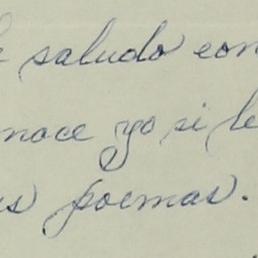 e saludo con
noce yo si le
us poemas.